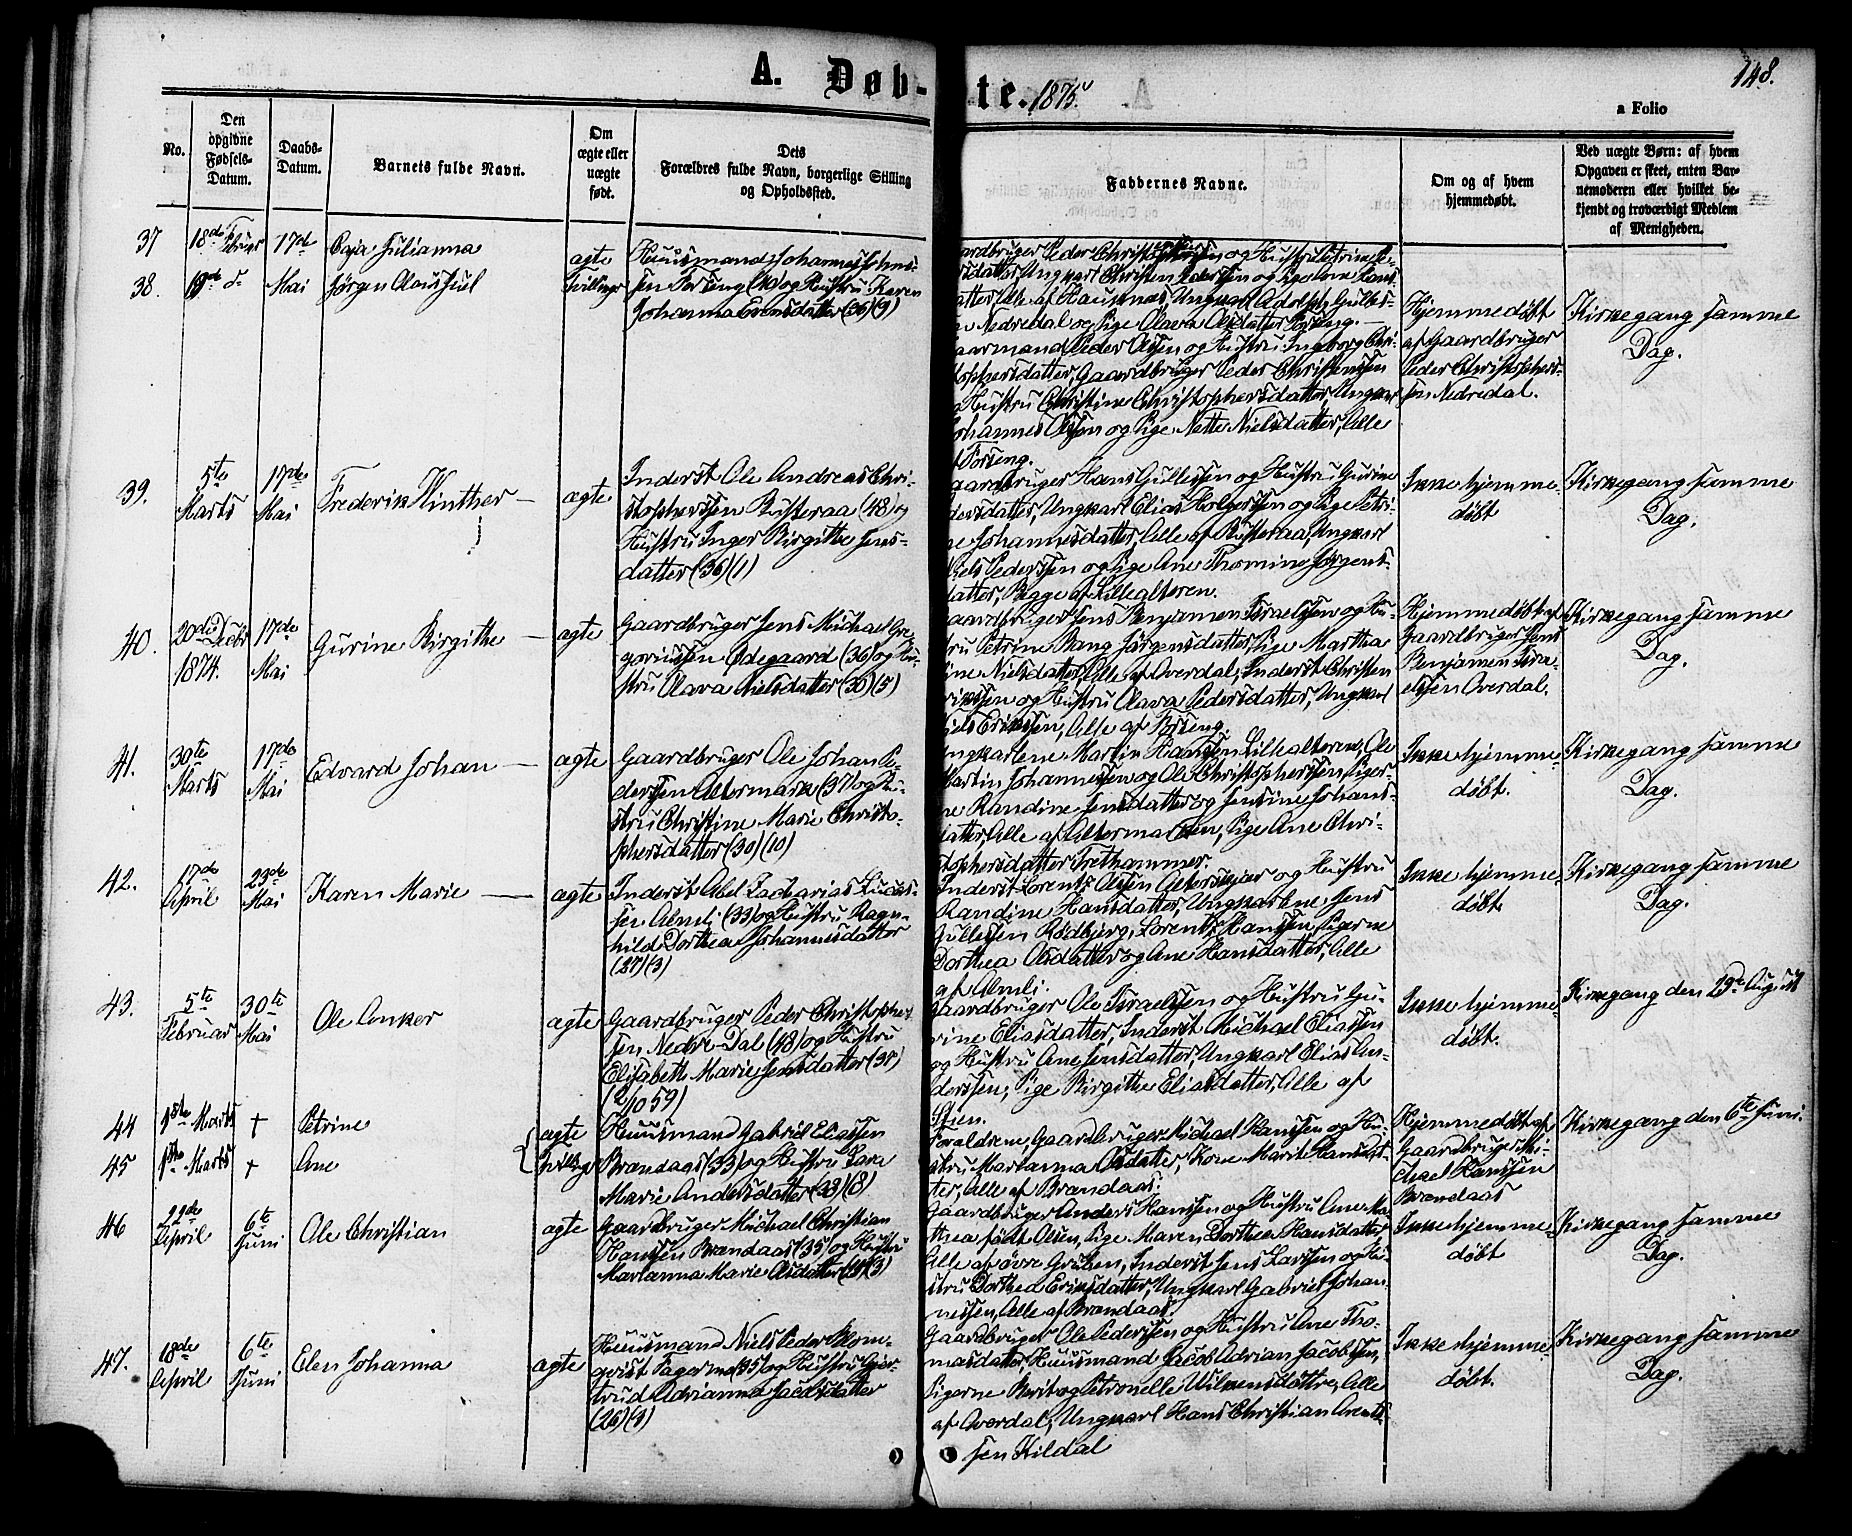 148.
A. Døb-te. 1875.
a Folio
No.
Den opgivne Fødsels-Datum.
Daabs-Datum.
Barnets fulde Navn.
Om ægte eller uægte født.
Dets
Forældres fulde Navn, borgerlige Stilling
og Opholdssted.
Faddernes Navne.
Om og af hvem
hjemmedøbt.
Ved uægte Børn: af hvem
Opgaven er skeet, enten Bar-
nemoderen eller hvilket be-
kjendt og troværdigt Medlem
af Menigheden.
37
18de Februar
17de
Caja Julianna
ægte
38.
19de d-
Mai
Jørgen Claus Juul
Tvillinger
Huusmand Johannes Johns-
sen Forseng (40) og Hustru Karen
Johanna Evensdatter (36) (9)
aardbruger Peder og Hustru Petrine Pe-
rsdatter, Ungkarl Christen Pedersen og Pige Ane Hans
atter, Alle af Hausknes, Ungkarl Adolph Gulles-
n Nedredal og Pige Olava Olsdatter Forseng.—
aarmand Peder Olsen og Hustru Ingeborg Chri-
topphersdatter, Gaardbruger Peder Christensen
g Hustru Christine Christophersdatter, Ungkarl
ohannes Olsen og Pige Nette Nielsdatter, Alle
f Forseng.
Hjemmedøbt
af Gaardbruger
Peder Christophers-
sen Nedredal.
Kirkegang samme
Dag.
39.
5te
Marts
17de
Mai
Frederik Winther —
ægte
Inderst Ole Andreas Chri-
stophersen Rusteraa (48) og
Hustru Inger Birgitte Jens-
datter (36) (1)
aardbruger Hans Gullesen og Hustru Gurine
dersdatter, Ungkarl Elias Holgersen og Pige Petri-
ne Johannesdatter, Alle af Rusteraa, Ungkarl
Niels Pedersen og Pige Ane Thomine Jørgens-
datter, Begge af Lillealteren.
Ikke hjemme-
døbt
Kirkegang samme
Dag.
40.
20de Decbr
1874.
17de
Mai
Gurine Birgitte —
ægte
Gaardbruger Jens Michael Gre-
goriussen Ødegaard (36) og Hu-
stru Olava Nielsdatter (30) (5)
aardbruger Jens Benjamin Israelsen og Hu-
tru Petrine Bang Jørgensdatter, Pige Martha
ine Nielsdatter, Alle af Overdal; Inderst Christen
riksen og Hustru Olava Pedersdatter, Ungkarl
Niels Eriksen, Alle af Forseng.
Hjemmedøbt af
Gaardbruger Jens
Benjamin Isra-
elsen Overdal.
Kirkegang samme
Dag.
41.
30te
Marts
17de
Mai
Edvard Johan —
ægte
Gaardbruger Ole Johan Pe-
dersen Altermark (37) og Hu-
stru Christine Marie Christo-
phersdatter (30) (10)
ngkarlene Martin Hansen Lillealteren, Ole
Martin Johannessen og Ole Christophersen, Piger-
ne Randine Jensdatter og Jensine Johans-
datter, Alle af Altermarken, Pige Ane Chri-
stophersdatter Trethammer.
Ikke hjemme-
døbt.
Kirkegang samme
Dag.
42.
17de
April
23de
Mai
Karen Marie —
ægte
Inderst Abel Zacharias Lucas-
sen Almli (33) og Hustru Ragn-
hild Dorthea Johannesdatter
(27) (3)
Inderst Lorents Olsen og Hustru
Randine Hansdatter, Ungkarlene Jens
Gullesen Rødbjerg, Lorents Hansen, Pigerne
Dorthea Olsdatter og Ane Hansdatter, Alle
af Almli.
Ikke hjemme-
døbt
Kirkegang samme
Dag.
43.
5te
Februar
30te
Mai
Ole Anker
ægte
Gaardbruger Peder Christopher-
sen Nedre-Dal (48) og Hustru
Elisabeth Marie Jensdatter (38)
Gaardbruger Ole Israelsen og Hustru Gu-
rine Eliasdatter, Inderst Michael Eliassen
og Hustru Ane Jensdatter, Ungkarl Elias An-
dersen, Pige Birgitte Eliasdatter, Alle af
Stien.
Ikke hjemme-
døbt.
Kirkegang den 29de August
44
1ste Marts
+
Petrine
ægte
45
1ste Marts
+
Ane
Tvillinger
Huusmand Gabriel Eliassen
Brændaas (33) og Hustru Lara
Marie Andersdatter (38) (8)
Forældrene, Gaardbruger Michael Hansen og Hu-
stru Marianna Olsdatter, Kone Marit Hansdat-
ter, Alle af Brændaas.
Hjemmedøbt af
Gaardbruger Mi-
chael Hansen
Brændaas
Kirkegang den 6te Juni.
46
22de
April
6te
Juni
Ole Christian
ægte
Gaardbruger Michael Christian
Hansen Brændaas (35) og Hustru
Marianna Marie Olsdatter (3)
Gaardbruger Anders Hansen og Hustru Ane Ma-
thea født Olsen, Pige Maren Dorthea Hansdatter,
Alle af øvre Gruben, Inderst Jens Larsen og Hu-
stru Dorthea Eriksdatter, Ungkarl Gabriel Johan-
nessen, Alle af Brændaas.
Ikke hjemme-
døbt
Kirkegang samme
Dag.
47.
18de
April
6te
Juni
Elen Johanna
ægte
Huusmand Niels Peder Blom-
qvist Fagermo (35) og Hustru Gjer-
trud Adrianna Jacobsdatter
(26) (1)
Gaardbruger Ole Pedersen og Hustru Ane Tho-
masdatter, Huusmand Jacob Adrian Jacobsen,
Pigerne Berit og Petronelle Wilkensdøttre, Alle
af Overdal, Ungkarl Hans Christian Arent-
sen Kildal
Ikke hjemme-
døbt.
Kirkegang samme
Dag.